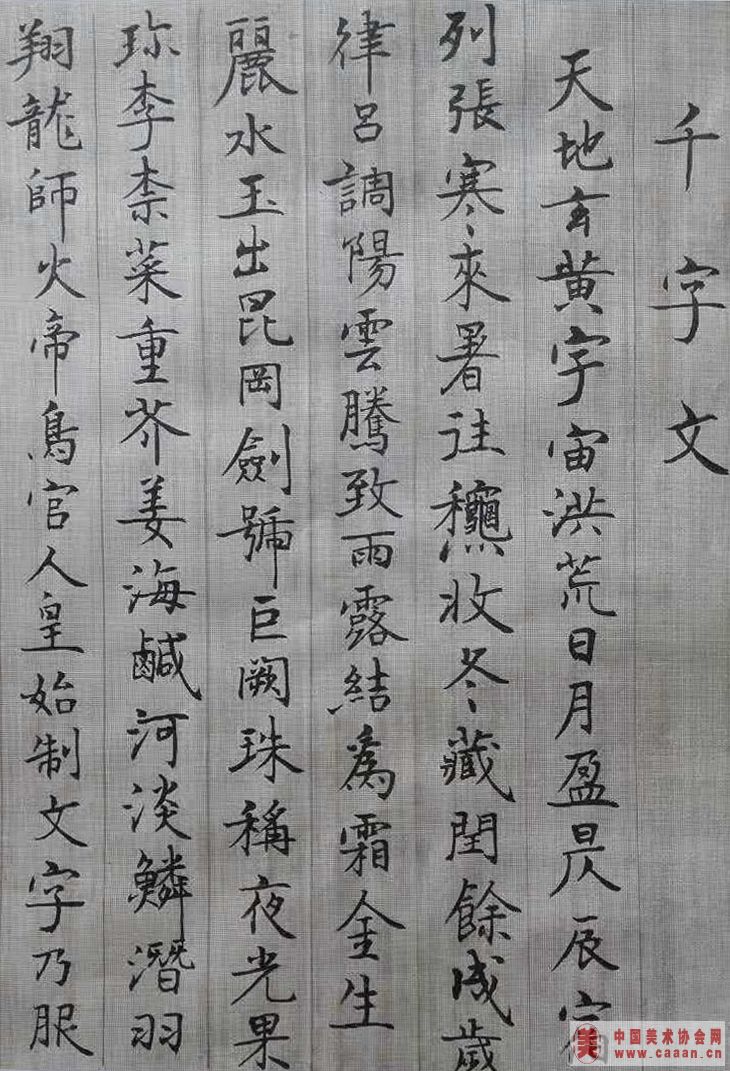 千字文
天地玄黄宇宙洪荒日月盈昃辰宿
列張寒來署往龝收冬藏閏餘成歲
律呂調陽雲騰致雨露結爲霜金生
麗水玉出昆岡劍號巨闕珠稱夜光果
珎李柰菜重芥姜海鹹河淡鱗潛羽
翔龍師火帝鳥官人皇始制文字乃服
美 中国美术协会网
www.caaan.cn